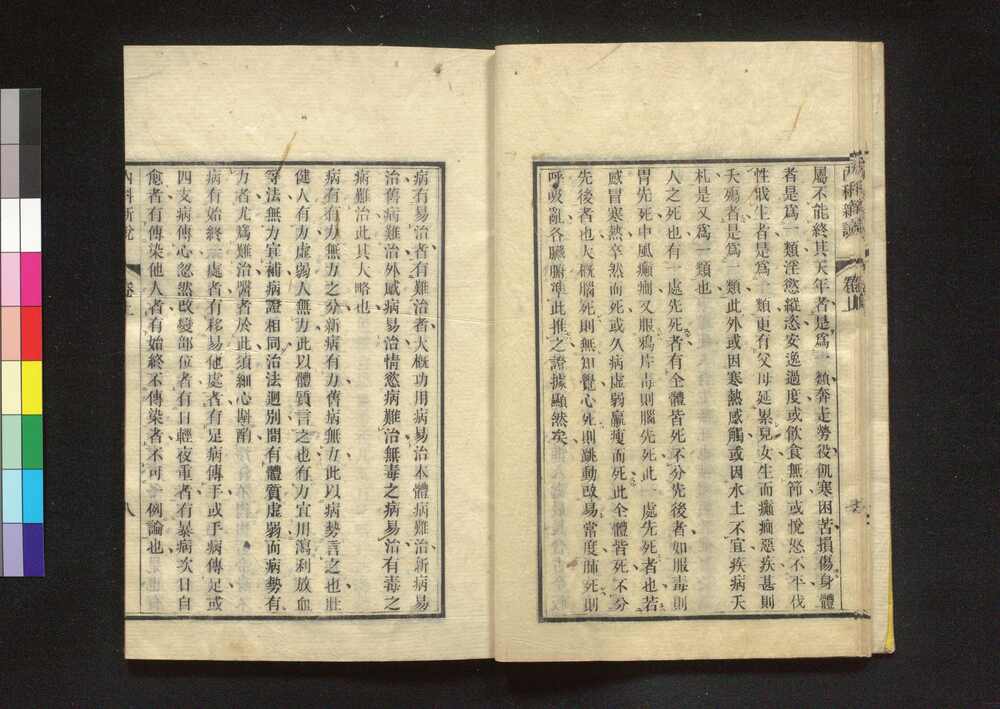 屬不能終其天年者是爲一類奔走勞役飢寒困苦損傷身體
者是爲一類淫慾縱恣安逸過度或飲食無節或悅怒不平伐
性戕生者是爲一類更有父母延累兒女生而癲癎惡疾甚則
夭殤者是爲一類此外或因寒熱感觸或因水土不宜疾病夭
札是又爲一類也
人之死也有一處先死者有全體皆死不分先後者如服毒則
胃先死中風癲癎又服鴉片毒則腦先死此一處先死者也若
感冒寒熱卒然而死或久病虛弱羸瘦而死此全體皆死不分
先後者也大概腦死則無知覺心死則跳動改易常度肺死則
呼吸亂各臟腑準此推之證據顯然矣
病有易治者有難治者大概功用病易治本體病難治新病易
治舊病難治外感病易治情慾病難治無毒之病易治有毒之
病難治此其大略也
病有有力無力之分新病有力舊病無力此以病勢言之也壯
健人有力虛弱人無力此以體質言之也有力宜用瀉利放血
等法無力宜補病證相同治法迥別間有體質虛弱而病勢有
力者尤爲難治醫者於此須細心斟酌
病有始終一處者有移易他處者有足病傳手或手病傳足或
四支病傳心忽然改變部位者有日輕夜重者有暴病次日自
愈者有傳染他人者有始終不傳染者不可一例論也
內科新說
卷上
八